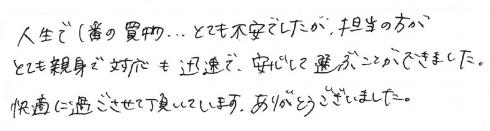 人生で1番の買物…とても不安でしたが、担当の方が
とても親身で対応も迅速で、安心して選ぶことができました。
快適に過ごさせて頂いています。ありがとうございました。